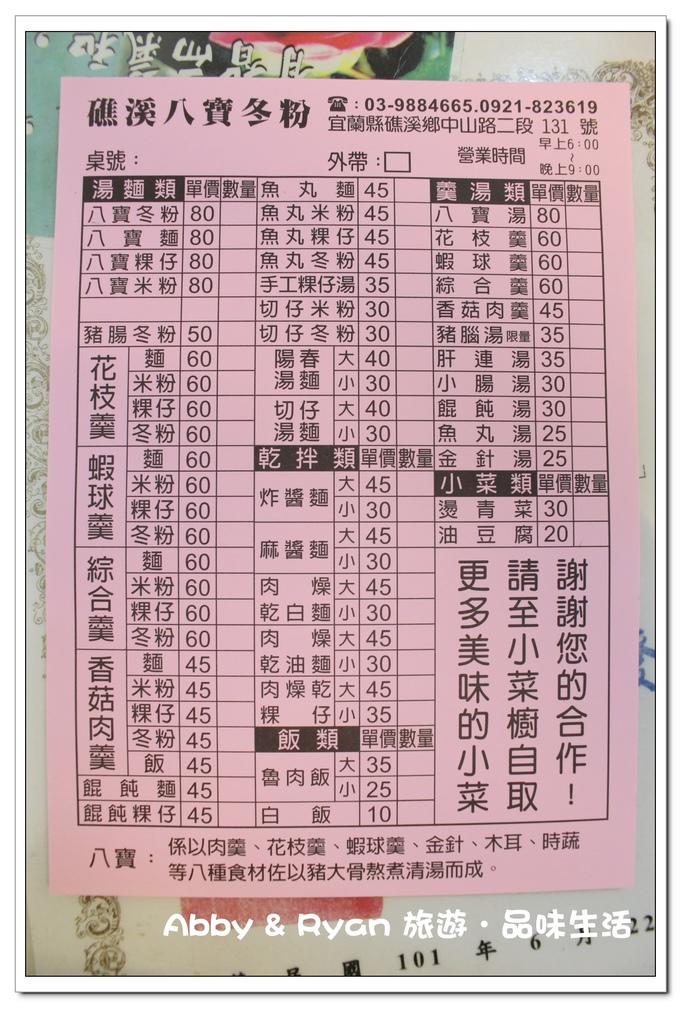 礁溪八寶冬粉
☎：03-9884665.0921-823619
宜蘭縣礁溪鄉中山路二段 131 號
桌號：
外帶：□
營業時間 早上6：00 ~ 晚上9：00
湯麵類 單價 數量
八寶冬粉 80
八寶麵 80
八寶粿仔 80
八寶米粉 80
豬腸冬粉 50
花枝羹
麵 60
米粉 60
粿仔 60
冬粉 60
蝦球羹
麵 60
米粉 60
粿仔 60
冬粉 60
綜合羹
麵 60
米粉 60
粿仔 60
冬粉 60
香菇肉羹
麵 45
米粉 45
粿仔 45
冬粉 45
飯 45
餛飩麵 45
餛飩粿仔 45
魚丸麵 45
魚丸米粉 45
魚丸粿仔 45
魚丸冬粉 45
手工粿仔湯 35
切仔米粉 30
切仔冬粉 30
陽春湯麵
大 40
小 30
切仔湯麵
大 40
小 30
乾拌類 單價 數量
炸醬麵
大 45
小 30
麻醬麵
大 45
小 30
肉燥 大 45
乾白麵 小 30
肉燥 大 45
乾油麵 小 30
肉燥乾 大 45
粿仔 小 35
飯類 單價 數量
魯肉飯
大 35
小 25
白飯 10
羹湯類 單價 數量
八寶湯 80
花枝羹 60
蝦球羹 60
綜合羹 60
香菇肉羹 45
豬腦湯 限量 35
肝連湯 35
小腸湯 30
餛飩湯 30
魚丸湯 25
金針湯 25
小菜類 單價 數量
燙青菜 30
油豆腐 20
謝謝您的合作！
請至小菜櫥自取
更多美味的小菜
八寶：係以肉羹、花枝羹、蝦球羹、金針、木耳、時蔬
等八種食材佐以豬大骨熬煮清湯而成。
Abby & Ryan 旅遊・品味生活
民國 101 年 6 月 22